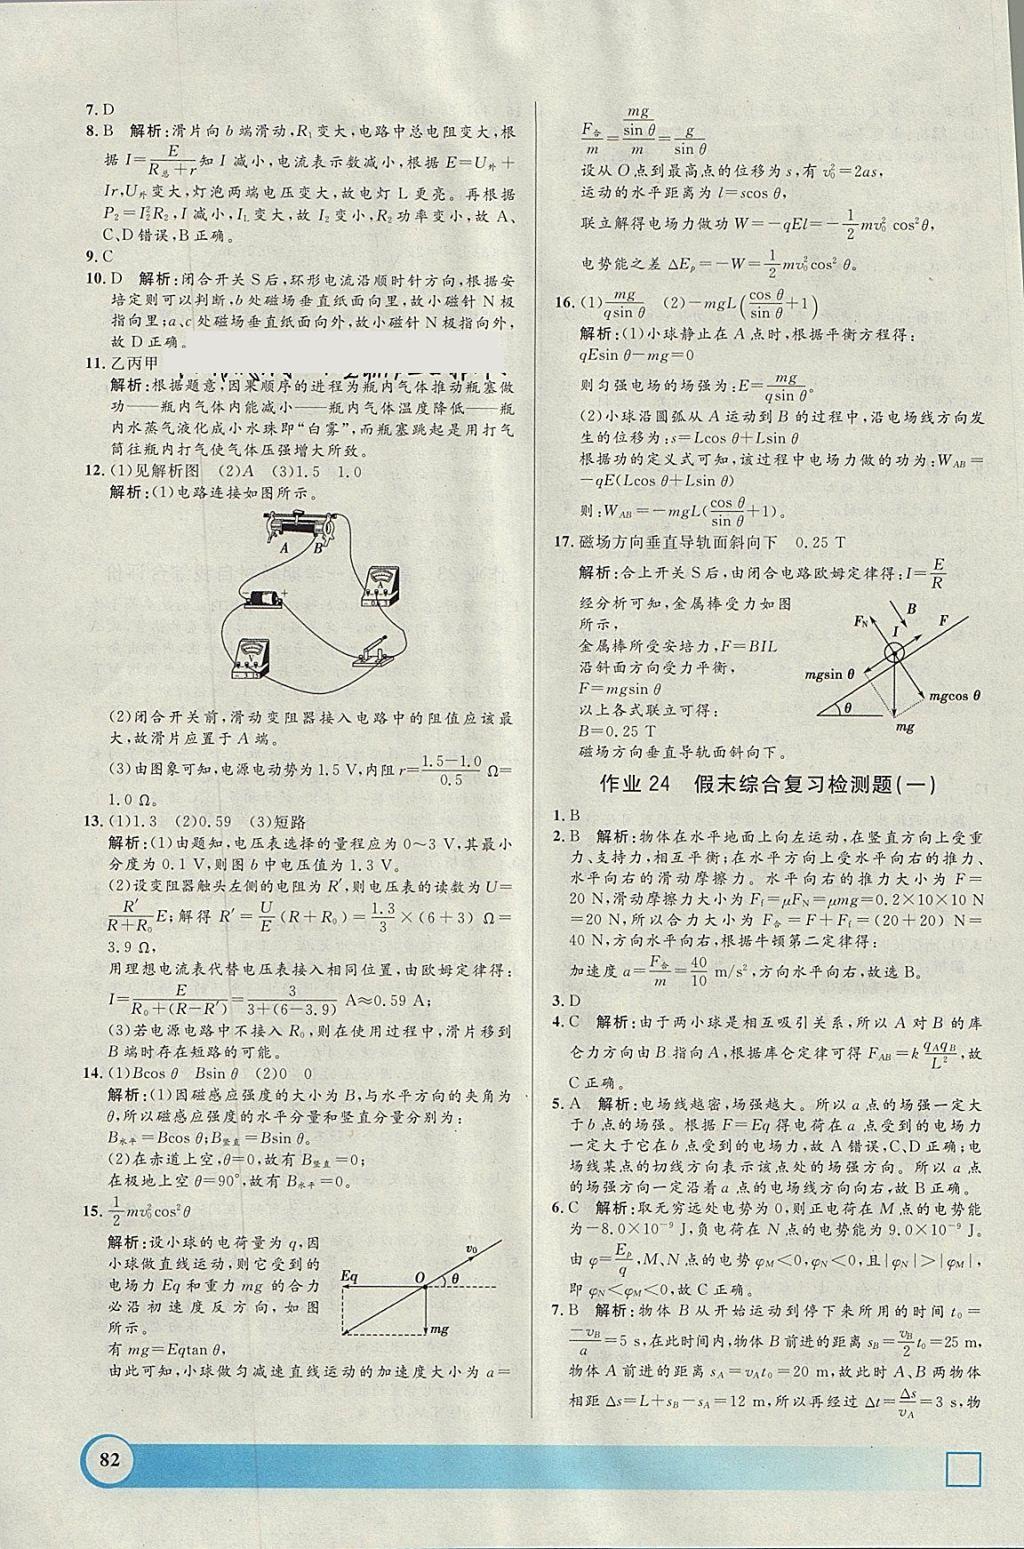 7. D
8. B 解析:滑片向 b 端滑动,R₁变大,电路中总电阻变大,根
据 I=E/(R总+r)知 I 减小,电流表示数减小,根据 E=U外+
Ir,U外变大,灯泡两端电压变大,故电灯 L 更亮。再根据
P₂=I₂²R₂,I 减小,I_L变大,故 I₂变小,R₂功率变小,故 A、
C、D 错误,B 正确。
9. C
10. D 解析:闭合开关 S 后,环形电流沿顺时针方向,根据安
培定则可以判断,b 处磁场垂直纸面向里,故小磁针 N 极
指向里;a、c 处磁场垂直纸面向外,故小磁针 N 极指向外,
故 D 正确。
11. 乙丙甲
解析:根据题意,因果顺序的进程为瓶内气体推动瓶塞做
功——瓶内气体内能减小——瓶内气体温度降低——瓶
内水蒸气液化成小水珠即“白雾”,而瓶塞跳起是用打气
筒往瓶内打气使气体压强增大所致。
12. (1)见解析图 (2)A (3)1.5 1.0
解析:(1)电路连接如图所示。
A B
A
+
V
(2)闭合开关前,滑动变阻器接入电路中的阻值应该最
大,故滑片应置于 A 端。
(3)由图象可知,电源电动势为 1.5 V,内阻 r=(1.5-1.0)/0.5 Ω=
1.0 Ω。
13. (1)1.3 (2)0.59 (3)短路
解析:(1)由题知,电压表选择的量程应为 0～3 V,其最小
分度为 0.1 V,则图 b 中电压值为 1.3 V。
(2)设变阻器触头左侧的电阻为 R′,则电压表的读数为 U=
R′/(R+R₀)E;解得 R′=U/E(R+R₀)=1.3/3×(6+3) Ω=
3.9 Ω,
用理想电流表代替电压表接入相同位置,由欧姆定律得:
I=E/(R₀+(R-R′))=3/(3+(6-3.9)) A≈0.59 A;
(3)若电源电路中不接入 R₀,则在使用过程中,滑片移到
B 端时存在短路的可能。
14. (1)Bcos θ Bsin θ (2)0 0
解析:(1)因磁感应强度的大小为 B,与水平方向的夹角为
θ,所以磁感应强度的水平分量和竖直分量分别为:
B水平=Bcos θ;B竖直=Bsin θ。
(2)在赤道上空,θ=0°,故有 B竖直=0。
在极地上空,θ=90°,故有 B水平=0。
15. 1/2mv₀²cos²θ
解析:设小球的电荷量为 q,因
小球做直线运动,则它受到的
电场力 Eq 和重力 mg 的合力
必沿初速度反方向,如图
所示。
v₀
Eq O θ
mg
有 mg=Eqtan θ,
由此可知,小球做匀减速直线运动的加速度大小为 a=
F合/m=(mg/sin θ)/m=g/sin θ
设从 O 点到最高点的位移为 s,有 v₀²=2as,
运动的水平距离为 l=scos θ,
联立解得电场力做功 W=-qEl=-1/2mv₀²cos²θ,
电势能之差 ΔEp=-W=1/2mv₀²cos²θ。
16. (1)mg/(qsin θ) (2)-mgL(cos θ/sin θ+1)
解析:(1)小球静止在 A 点时,根据平衡方程得:
qEsin θ-mg=0
则匀强电场的场强为:E=mg/(qsin θ)
(2)小球沿圆弧从 A 运动到 B 的过程中,沿电场线方向发
生的位移为:s=Lcos θ+Lsin θ
根据功的定义式可知,该过程中电场力做的功为:W_AB=
-qE(Lcos θ+Lsin θ)
则:W_AB=-mgL(cos θ/sin θ+1)。
17. 磁场方向垂直导轨面斜向下 0.25 T
解析:合上开关 S 后,由闭合电路欧姆定律得:I=E/R
经分析可知,金属棒受力如图
所示,
金属棒所受安培力,F=BIL
沿斜面方向受力平衡,
F=mgsin θ
以上各式联立可得:
B=0.25 T
磁场方向垂直导轨面斜向下。
B
F_N I F
mgsin θ
mgcos θ
θ
mg
作业 24 假末综合复习检测题(一)
1. B
2. B 解析:物体在水平地面上向左运动,在竖直方向上受重
力、支持力,相互平衡;在水平方向上受水平向右的推力、
水平向右的滑动摩擦力。水平向右的推力大小为 F=
20 N,滑动摩擦力大小为 Ff=μF_N=μmg=0.2×10×10 N
=20 N,所以合力大小为 F合=F+Ff=(20+20) N=
40 N,方向水平向右,根据牛顿第二定律得:
加速度 a=F合/m=40/10 m/s²,方向水平向右,故选 B。
3. D
4. C 解析:由于两小球是相互吸引关系,所以 A 对 B 的库
仑力方向由 B 指向 A,根据库仑定律可得 F_AB=k q_A q_B/L²,故
C 正确。
5. A 解析:电场线越密,场强越大。所以 a 点的场强一定大
于 b 点的场强。根据 F=Eq 得电荷在 a 点受到的电场力
一定大于它在 b 点受到的电场力,故 A 错误,C、D 正确。电
场线某点的切线方向表示该点处的场强方向。所以 a 点
的场强方向一定沿着 a 点的电场线方向向右,故 B 正确。
6. C 解析:取无穷远处电势为 0,则正电荷在 M 点的电势能
为-8.0×10⁻⁹ J,负电荷在 N 点的电势能为 9.0×10⁻⁹ J。
由 φ=Ep/q,M、N 点的电势 φ_M<0,φ_N<0,且|φ_N|>|φ_M|,
即 φ_N<φ_M<0,故 C 正确。
7. B 解析:物体 B 从开始运动到停下来所用的时间 t₀=
-v_B/a=5 s,在此时间内,物体 B 前进的距离 s_B=v_B/2 t₀=25 m,
物体 A 前进的距离 s_A=v_A t₀=20 m,故此时 A、B 两物体
相距 Δs=L+s_B-s_A=12 m,所以再经过 Δt=Δs/v_A=3 s,物
82